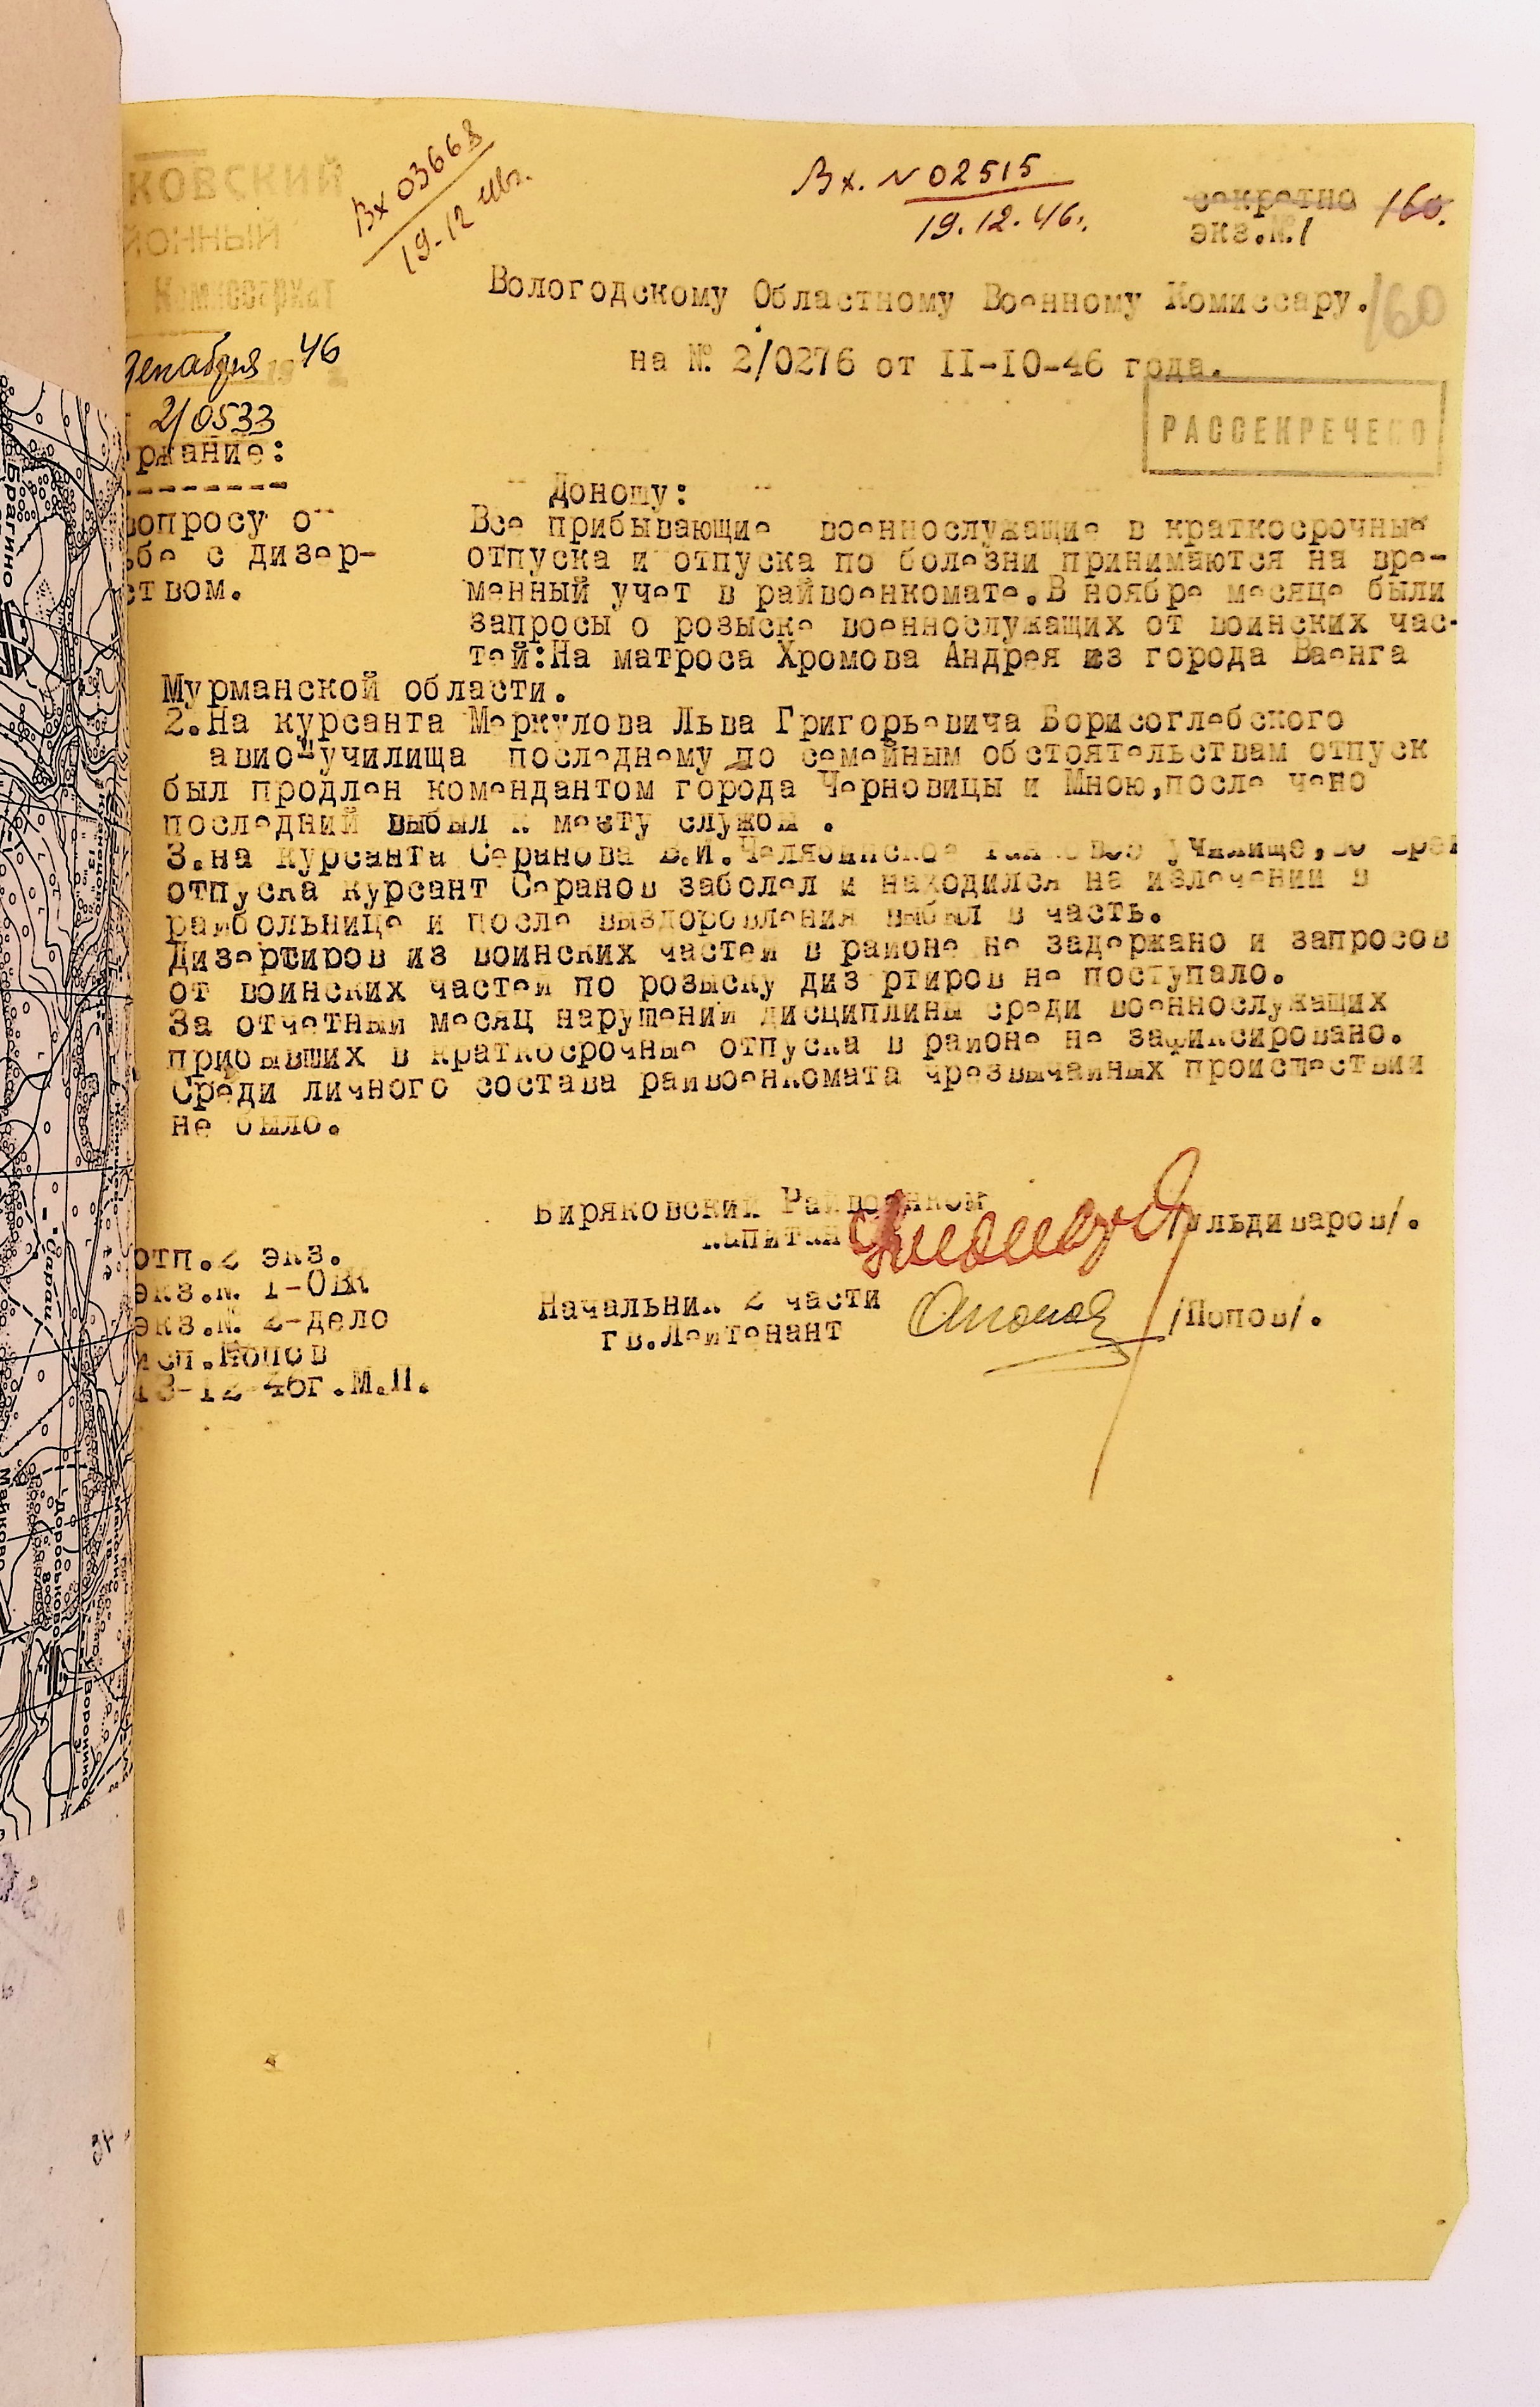 Вх 03668
19-12
Вх. N 02515
19.12.46г.
секретно 160.
экз.№.1
КОВСКИЙ
ЙОННЫЙ
Комиссариат
декабря 1946
2/0533
Вологодскому Областному Военному Комиссару.
160
на № 2/0276 от II-IO-46 года.
РАССЕКРЕЧЕНО
ржание:
--------
вопросу о
ьбе с дизер-
ством.
Доношу:
Все прибывающие военнослужащие в краткосрочные
отпуска и отпуска по болезни принимаются на вре-
менный учет в райвоенкомате.В ноябре месяце были
запросы о розыске военнослужащих от воинских час-
тей:На матроса Хромова Андрея из города Ваенга
Мурманской области.
2.На курсанта Меркулова Льва Григорьевича Борисоглебского
авио-училища последнему по семейным обстоятельствам отпуск
был продлен комендантом города Черновицы и Мною,после чего
последний выбыл к месту службы .
3.на курсанта Серанова В.И.Челябинское танковое училище,во врем
отпуска курсант Серанов заболел и находился на излечении в
райбольнице и после выздоровления выбыл в часть.
Дизертиров из воинских частей в районе не задержано и запросов
от воинских частей по розыску дизертиров не поступало.
За отчетный месяц нарушений дисциплины среди военнослужащих
прибывших в краткосрочные отпуска в районе не зафиксировано.
Среди личного состава райвоенкомата чрезвычайных происшествий
не было.
Биряковский Райвоенком
капитан льдиваров/.
Начальник 2 части
гв.Лейтенант /Попов/.
отп.2 экз.
экз.№ 1-ОВК
экз.№ 2-дело
исп.Попов
13-12-46г.М.П.
Брагино
Сараи
Дороськово
Воронино
Майково